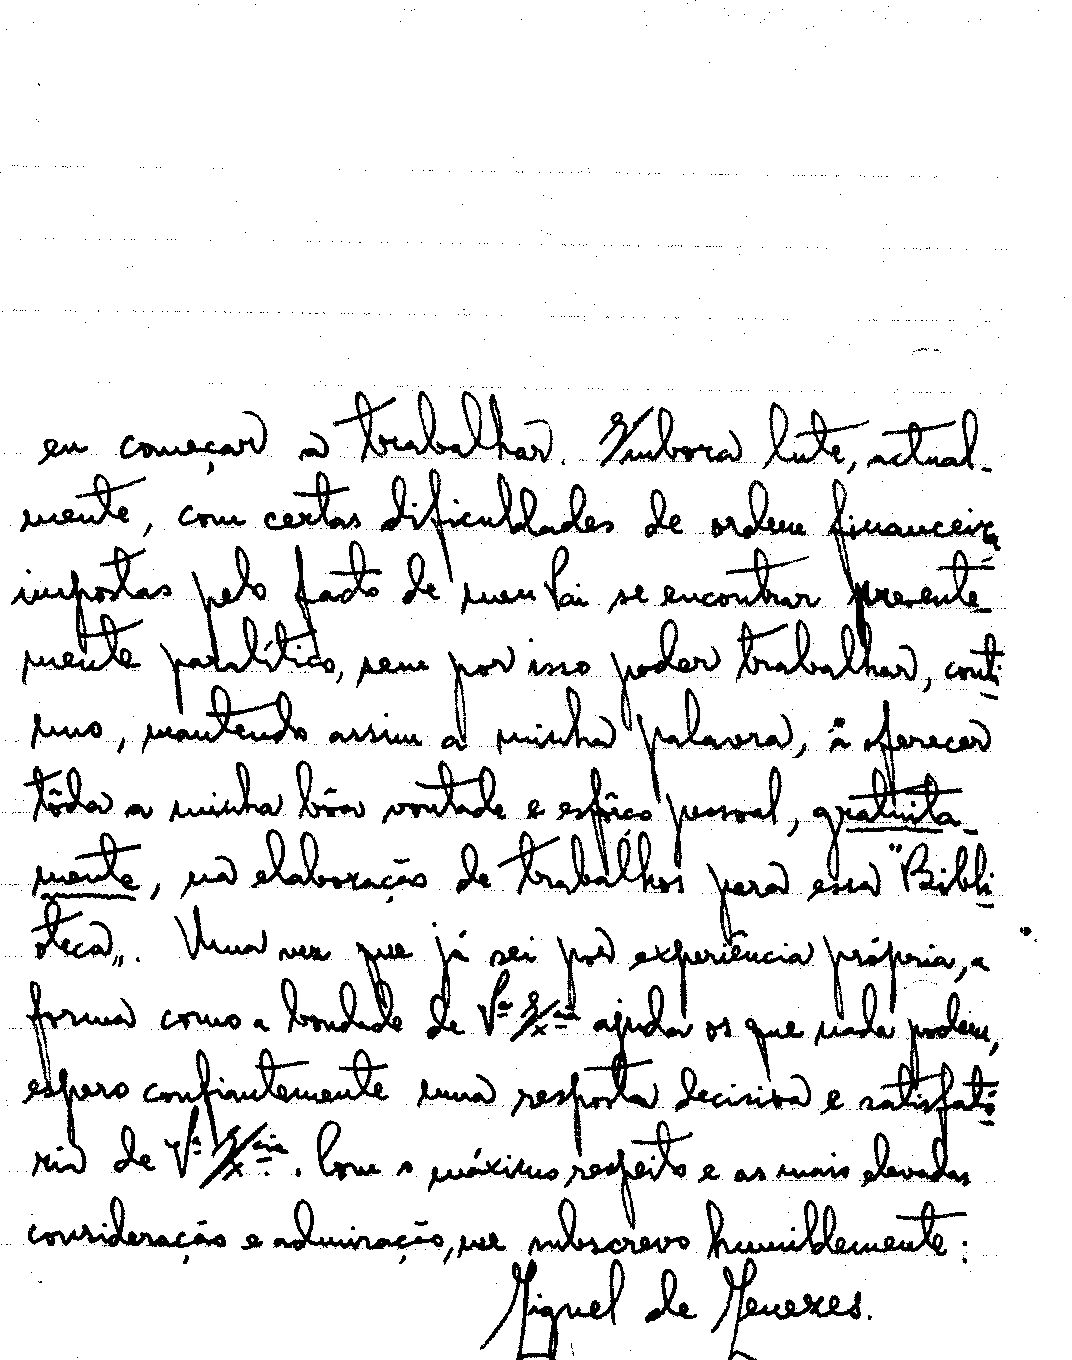 eu começar a trabalhar. Embora lute, actual-
mente, com certas dificuldades de ordem financeira
impostas pelo facto de meu Pai se encontrar presente-
mente paralítico, sem por isso poder trabalhar, conti-
nuo, mantendo assim a minha palavra, a oferecer
tôda a minha bôa vontade e esfôrço pessoal, gratuita-
mente, na elaboração de trabalhos para essa "Bibli-
oteca„. Uma vez que já sei por experiência própria, a
forma como a bondade de Vª Exªˢ ajuda os que nada podem,
espero confiantemente uma resposta decisiva e satisfató-
ria de Vª Exciª. Com o máximo respeito e as mais elevadas
consideração e admiração, me subscrevo humildemente:
Miguel de Menezes.